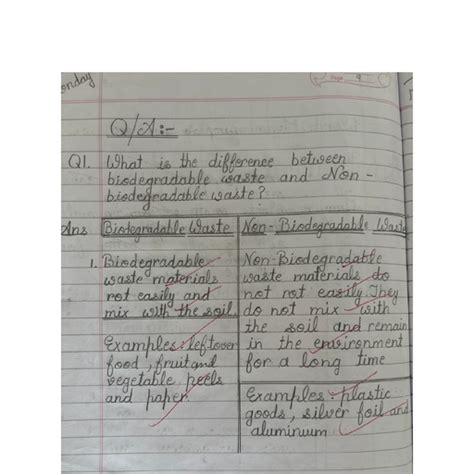 onday
Page 9
Q/A:-
Q1. What is the difference between
biodegradable waste and Non-
biodegradable waste?
Ans Biodegradable Waste
1. Biodegradable
waste materials
rot easily and
mix with the soil.
Examples: leftover
food, fruit and
vegetable peels
and paper
Non-Biodegradable Waste
Non-Biodegradable
waste materials do
not rot easily. They
do not mix with
the soil and remain
in the environment
for a long time
Examples: plastic
goods, silver foil and
aluminium